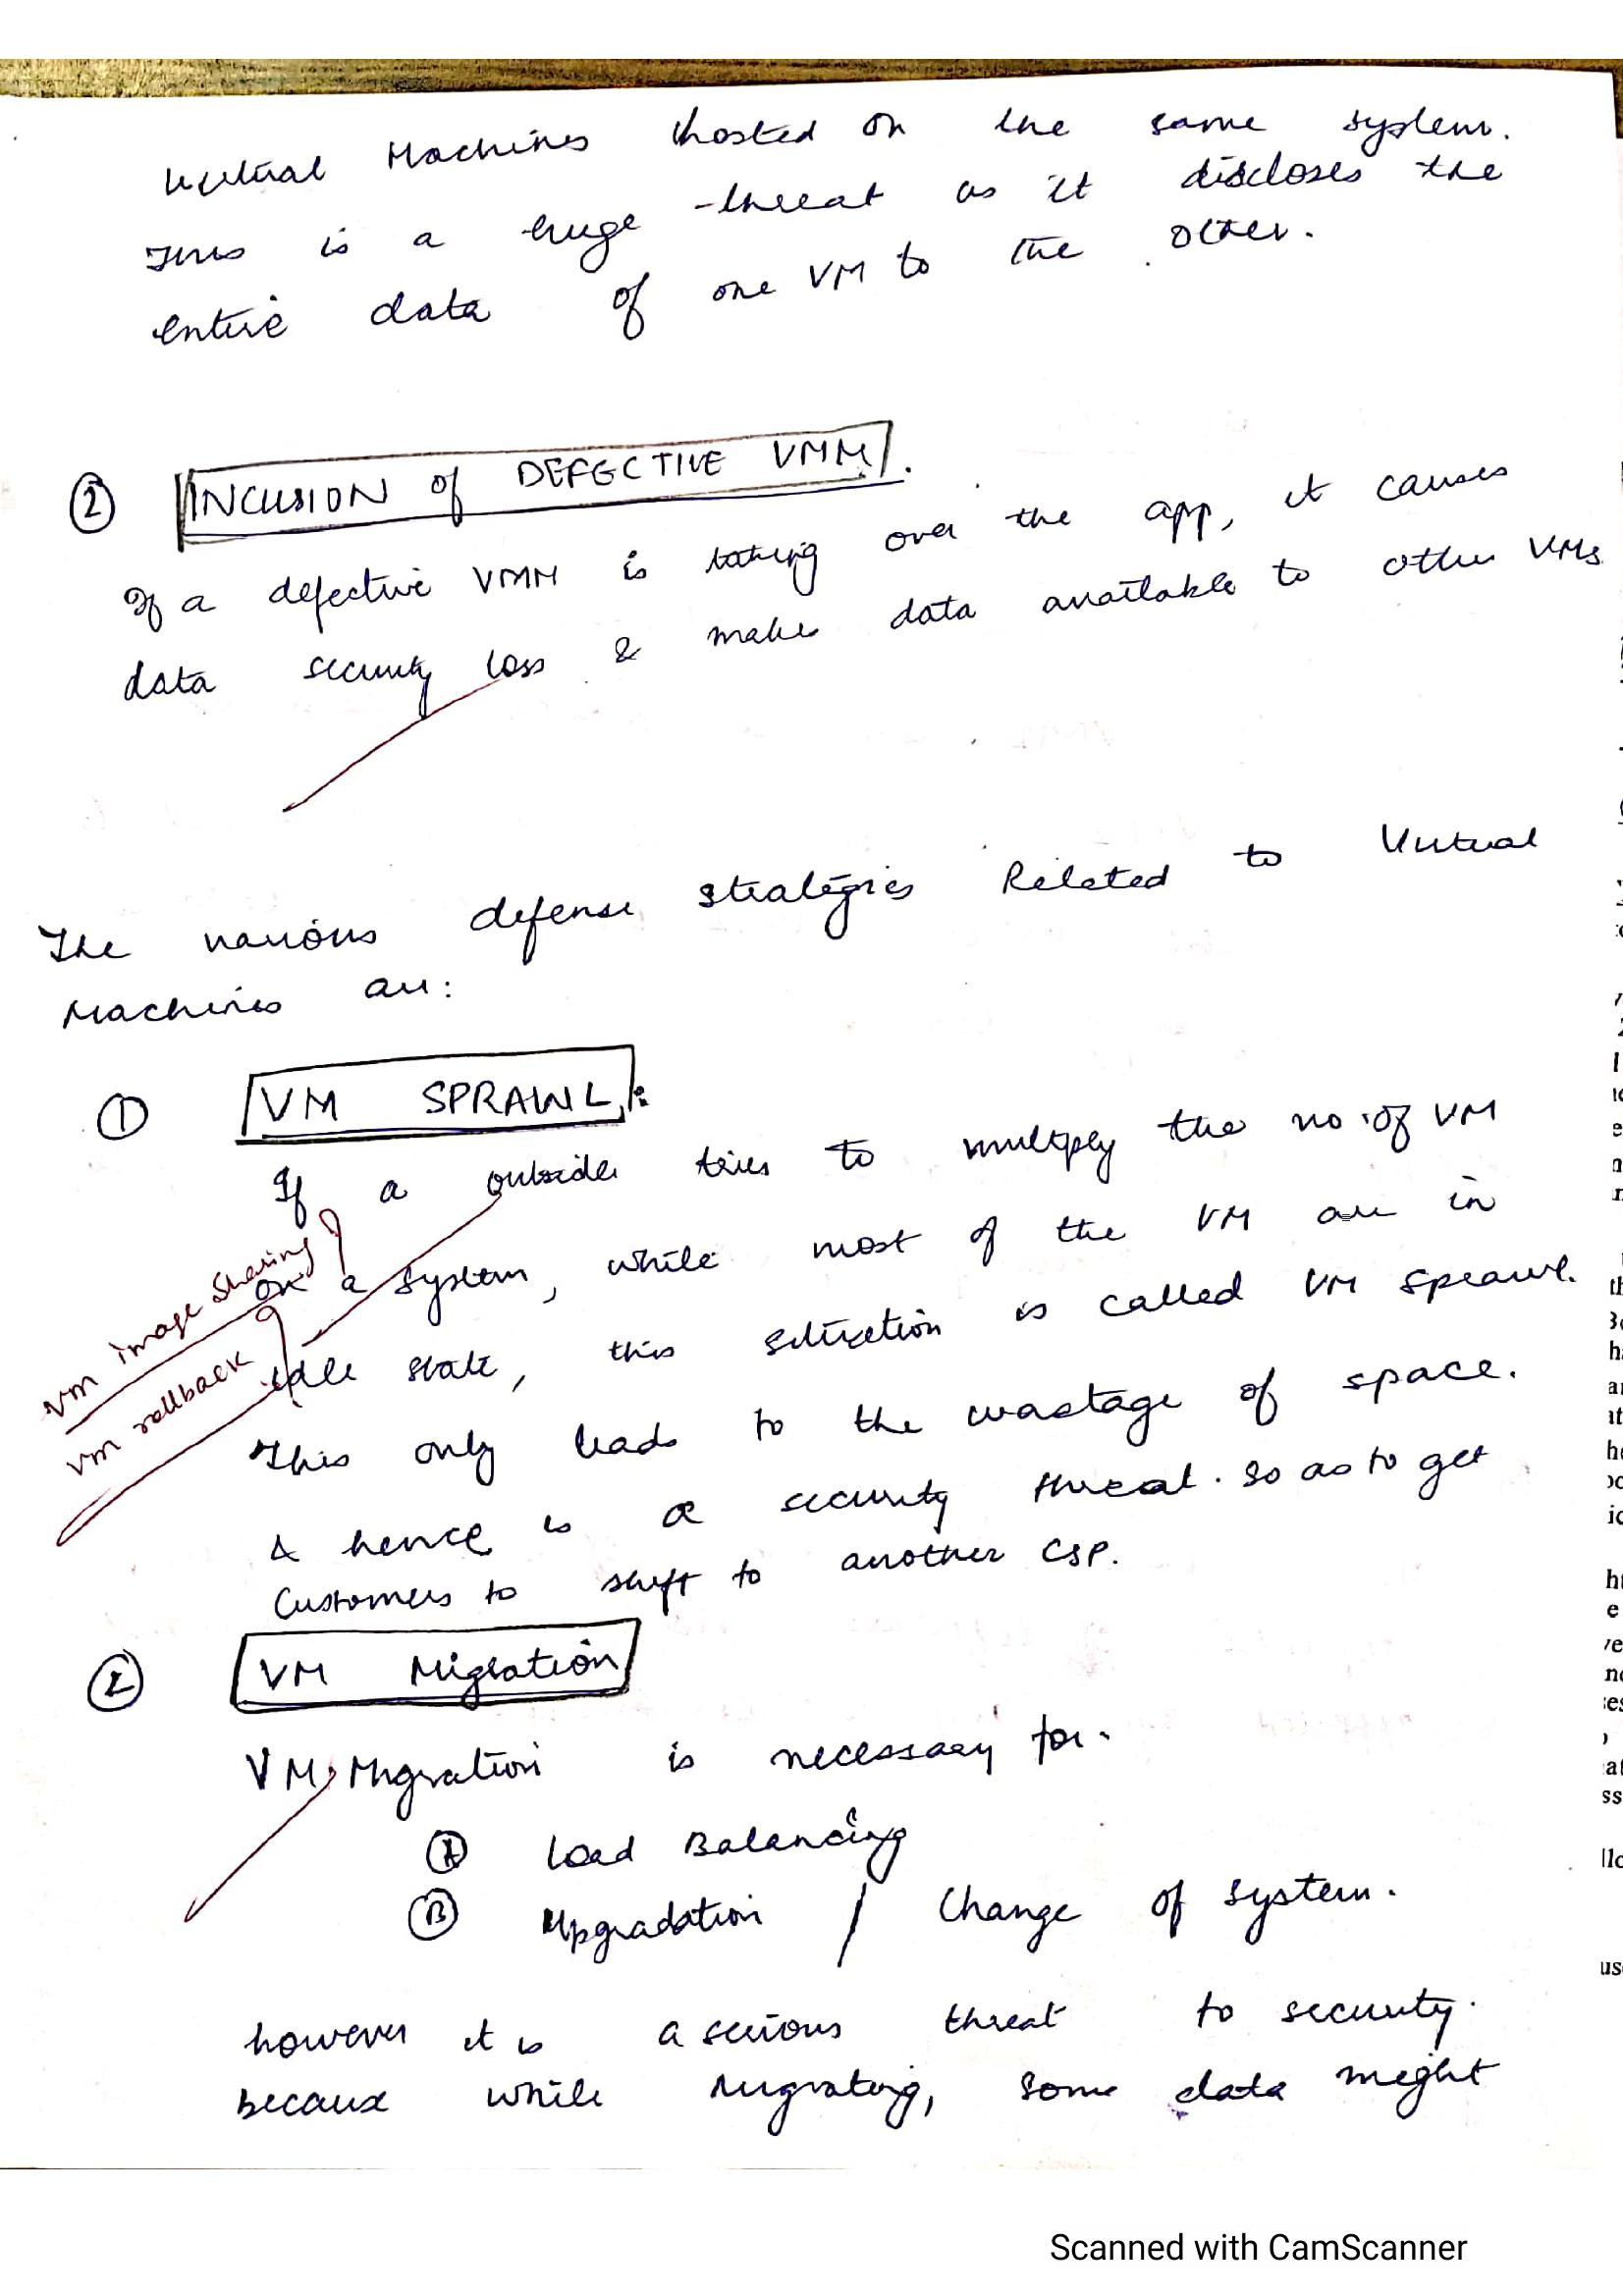 Virtual Machines hosted on the same system.
This is a huge threat as it discloses the
entire data of one VM to the other.
② INCUSION of DEFECTIVE VMM.
If a defective VMM is taking over the app, it causes
data security loss & makes data available to other VMs
The various defense strategies Related to Virtual
Machines are:
① VM SPRAWL:
If a outsider tries to multiply the no. of VM
on a system, while most of the VM are in
idle state, this situation is called VM sprawl.
This only leads to the wastage of space.
& hence is a security threat. so as to get
Customers to shift to another CSP.
VM image sharing?
VM rollback?
② VM Migration
VM Migration is necessary for.
Ⓐ Load Balancing
Ⓑ Upgradation / Change of system.
however it is a serious threat to security.
because while migrating, some data might
Scanned with CamScanner